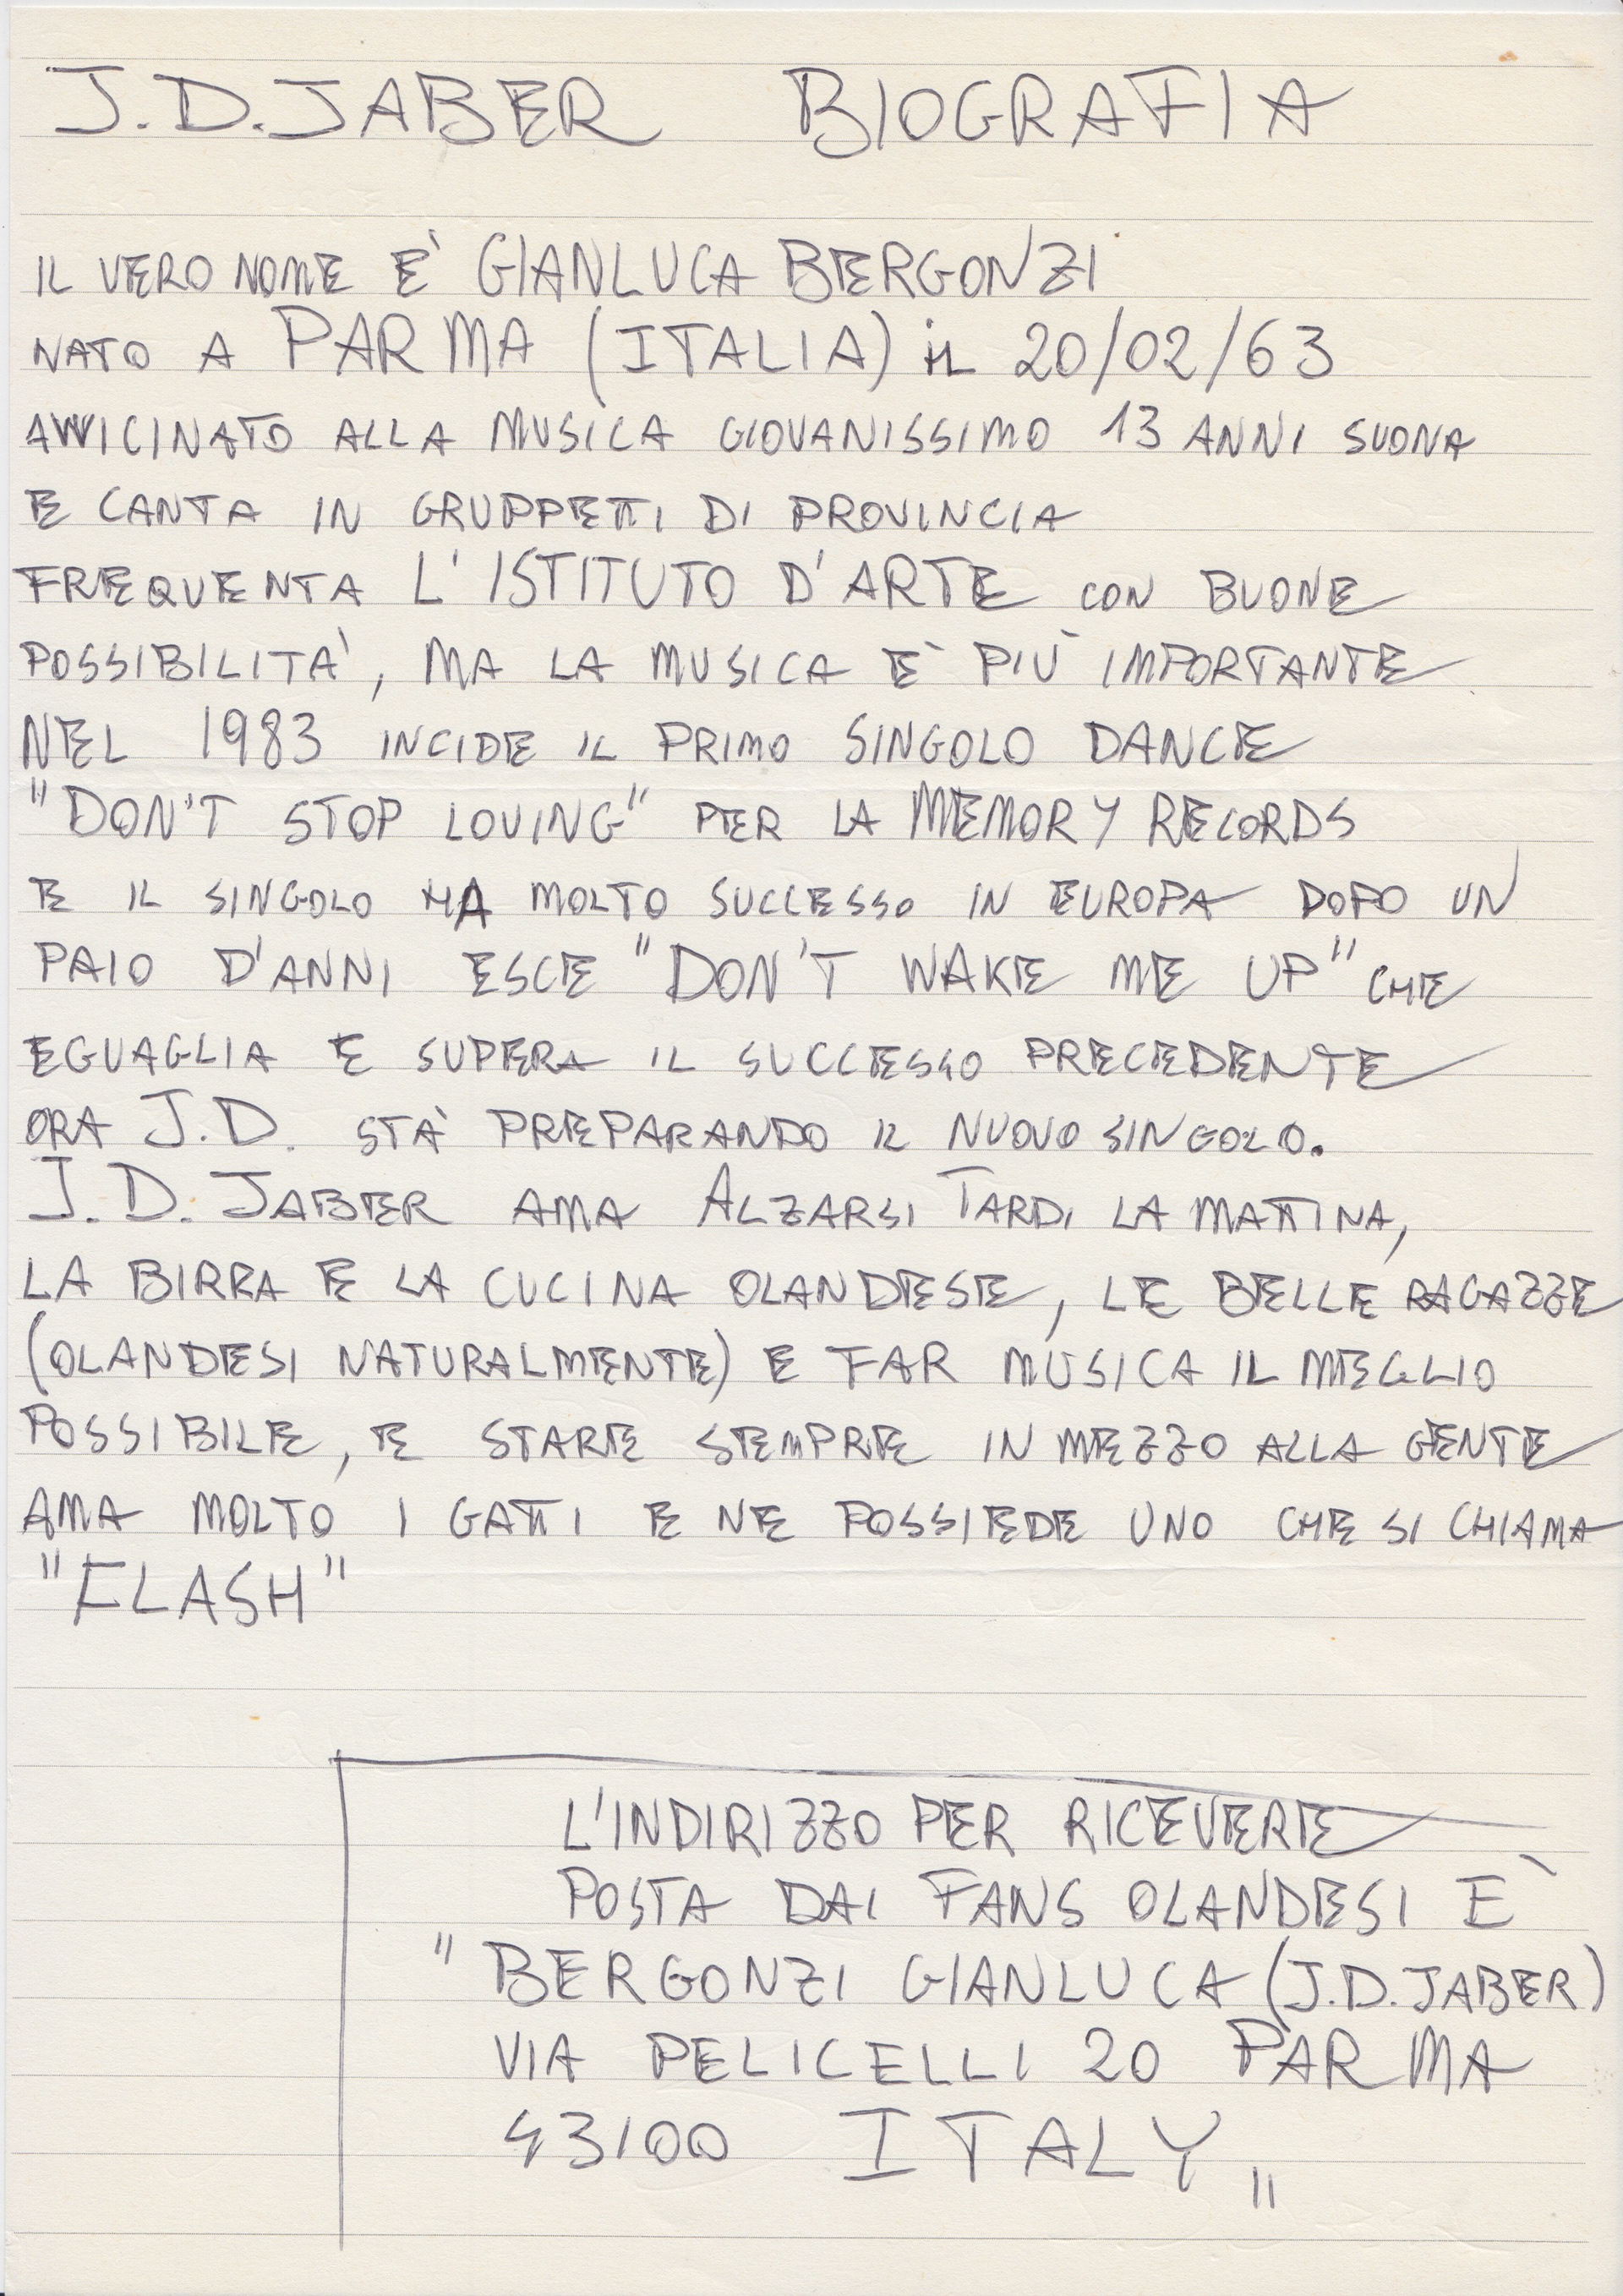 J.D. JABER BIOGRAFIA
IL VERO NOME E' GIANLUCA BERGONZI
NATO A PARMA (ITALIA) il 20/02/63
AVVICINATO ALLA MUSICA GIOVANISSIMO 13 ANNI SUONA
E CANTA IN GRUPPETTI DI PROVINCIA
FREQUENTA L'ISTITUTO D'ARTE CON BUONE
POSSIBILITA', MA LA MUSICA E' PIÙ IMPORTANTE
NEL 1983 INCIDE IL PRIMO SINGOLO DANCE
"DON'T STOP LOVING" PER LA MEMORY RECORDS
E IL SINGOLO HA MOLTO SUCCESSO IN EUROPA DOPO UN
PAIO D'ANNI ESCE "DON'T WAKE ME UP" CHE
EGUAGLIA E SUPERA IL SUCCESSO PRECEDENTE
ORA J.D. STÀ PREPARANDO IL NUOVO SINGOLO.
J.D. JABER AMA ALZARSI TARDI LA MATTINA,
LA BIRRA E LA CUCINA OLANDESE, LE BELLE RAGAZZE
(OLANDESI NATURALMENTE) E FAR MUSICA IL MEGLIO
POSSIBILE, E STARE SEMPRE IN MEZZO ALLA GENTE
AMA MOLTO I GATTI E NE POSSIEDE UNO CHE SI CHIAMA
"FLASH"
L'INDIRIZZO PER RICEVERE
POSTA DAI FANS OLANDESI È
"BERGONZI GIANLUCA (J.D. JABER)
VIA PELICELLI 20 PARMA
43100 ITALY"